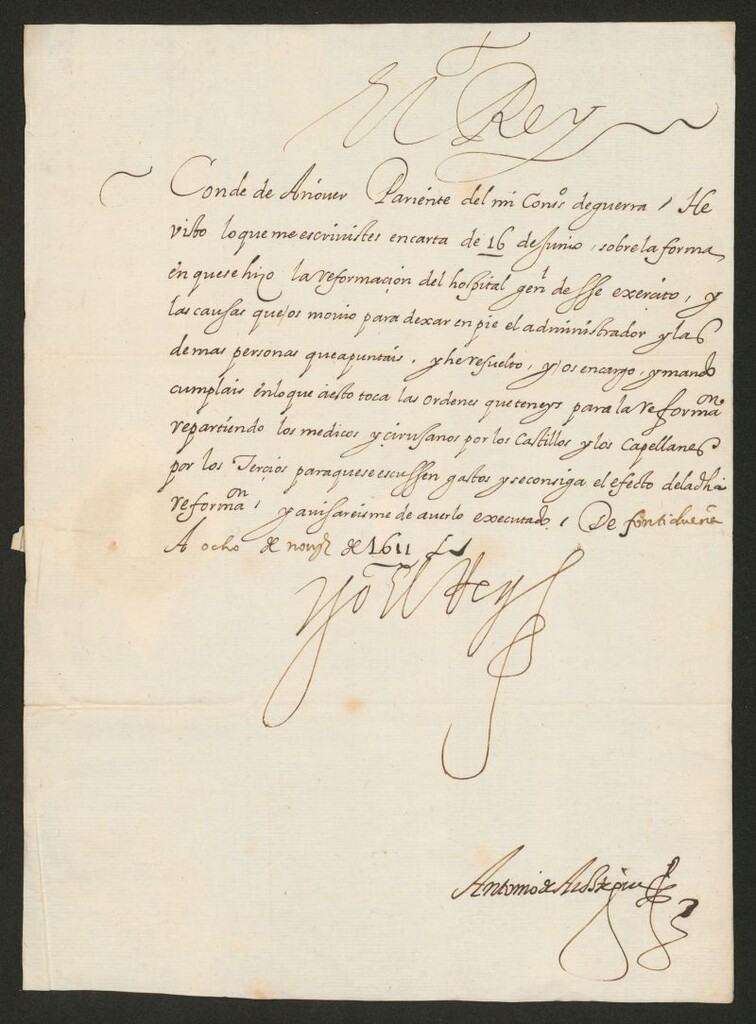 El Rey
Conde de Añover Pariente del mi Cons.º de guerra / He
visto lo que me escrivistes en carta de 16 de Junio, sobre la forma
en que se hizo la reformaçion del hospital gen.l desse exercito, y
las causas que os movio para dexar en pie el administrador y las
demas personas que apuntais, y he resuelto, y os encargo, y mando
cumplais en lo que a esto toca las ordenes que teneys para la reforma.on
repartiendo los medicos y çirujanos por los Castillos y los Capellanes
por los Terçios para que se escussen gastos y se consiga el efecto de la dha
reforma.on, y avisareisme de averlo executado, De fontidueña
A ocho de nov.e de 1611
Yo El Rey
Antonio de